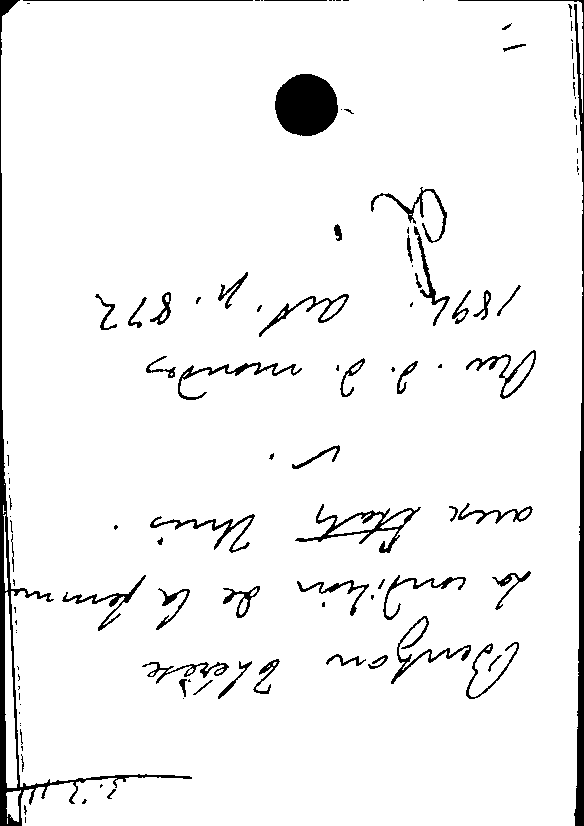 3.3.111
Bentzon Thérèse
La condition de la femme
aux Etats Unis.
V.
Rev. d. d. mondes
1894. oct. p. 872